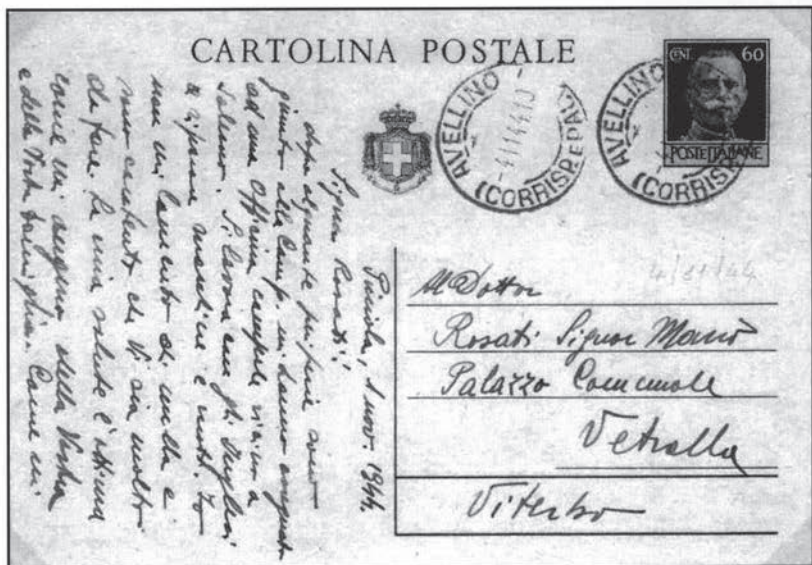 CARTOLINA POSTALE
CENT. 60
POSTE ITALIANE
AVELLINO
4.11.44.10
(CORRISP.EPAC.)
AVELLINO
(CORRISP
4/11/44
Al Dottor
Rosati Signor Mario
Palazzo Comunale
Vetralla
Viterbo
1 nov. 1944.
Signor Rosati!
dopo alquante peripezie sono
giunto alla Camp. mi hanno
ad una Officina campale vicino a
Salerno. Si lavora con gli Inglesi
si ripara macchine e moto. Io
non mi lamento di nulla e
sono contento che vi sia molto
da fare. La mia salute è ottima
come mi auguro della Vostra
e della Vostra famiglia. Come mi